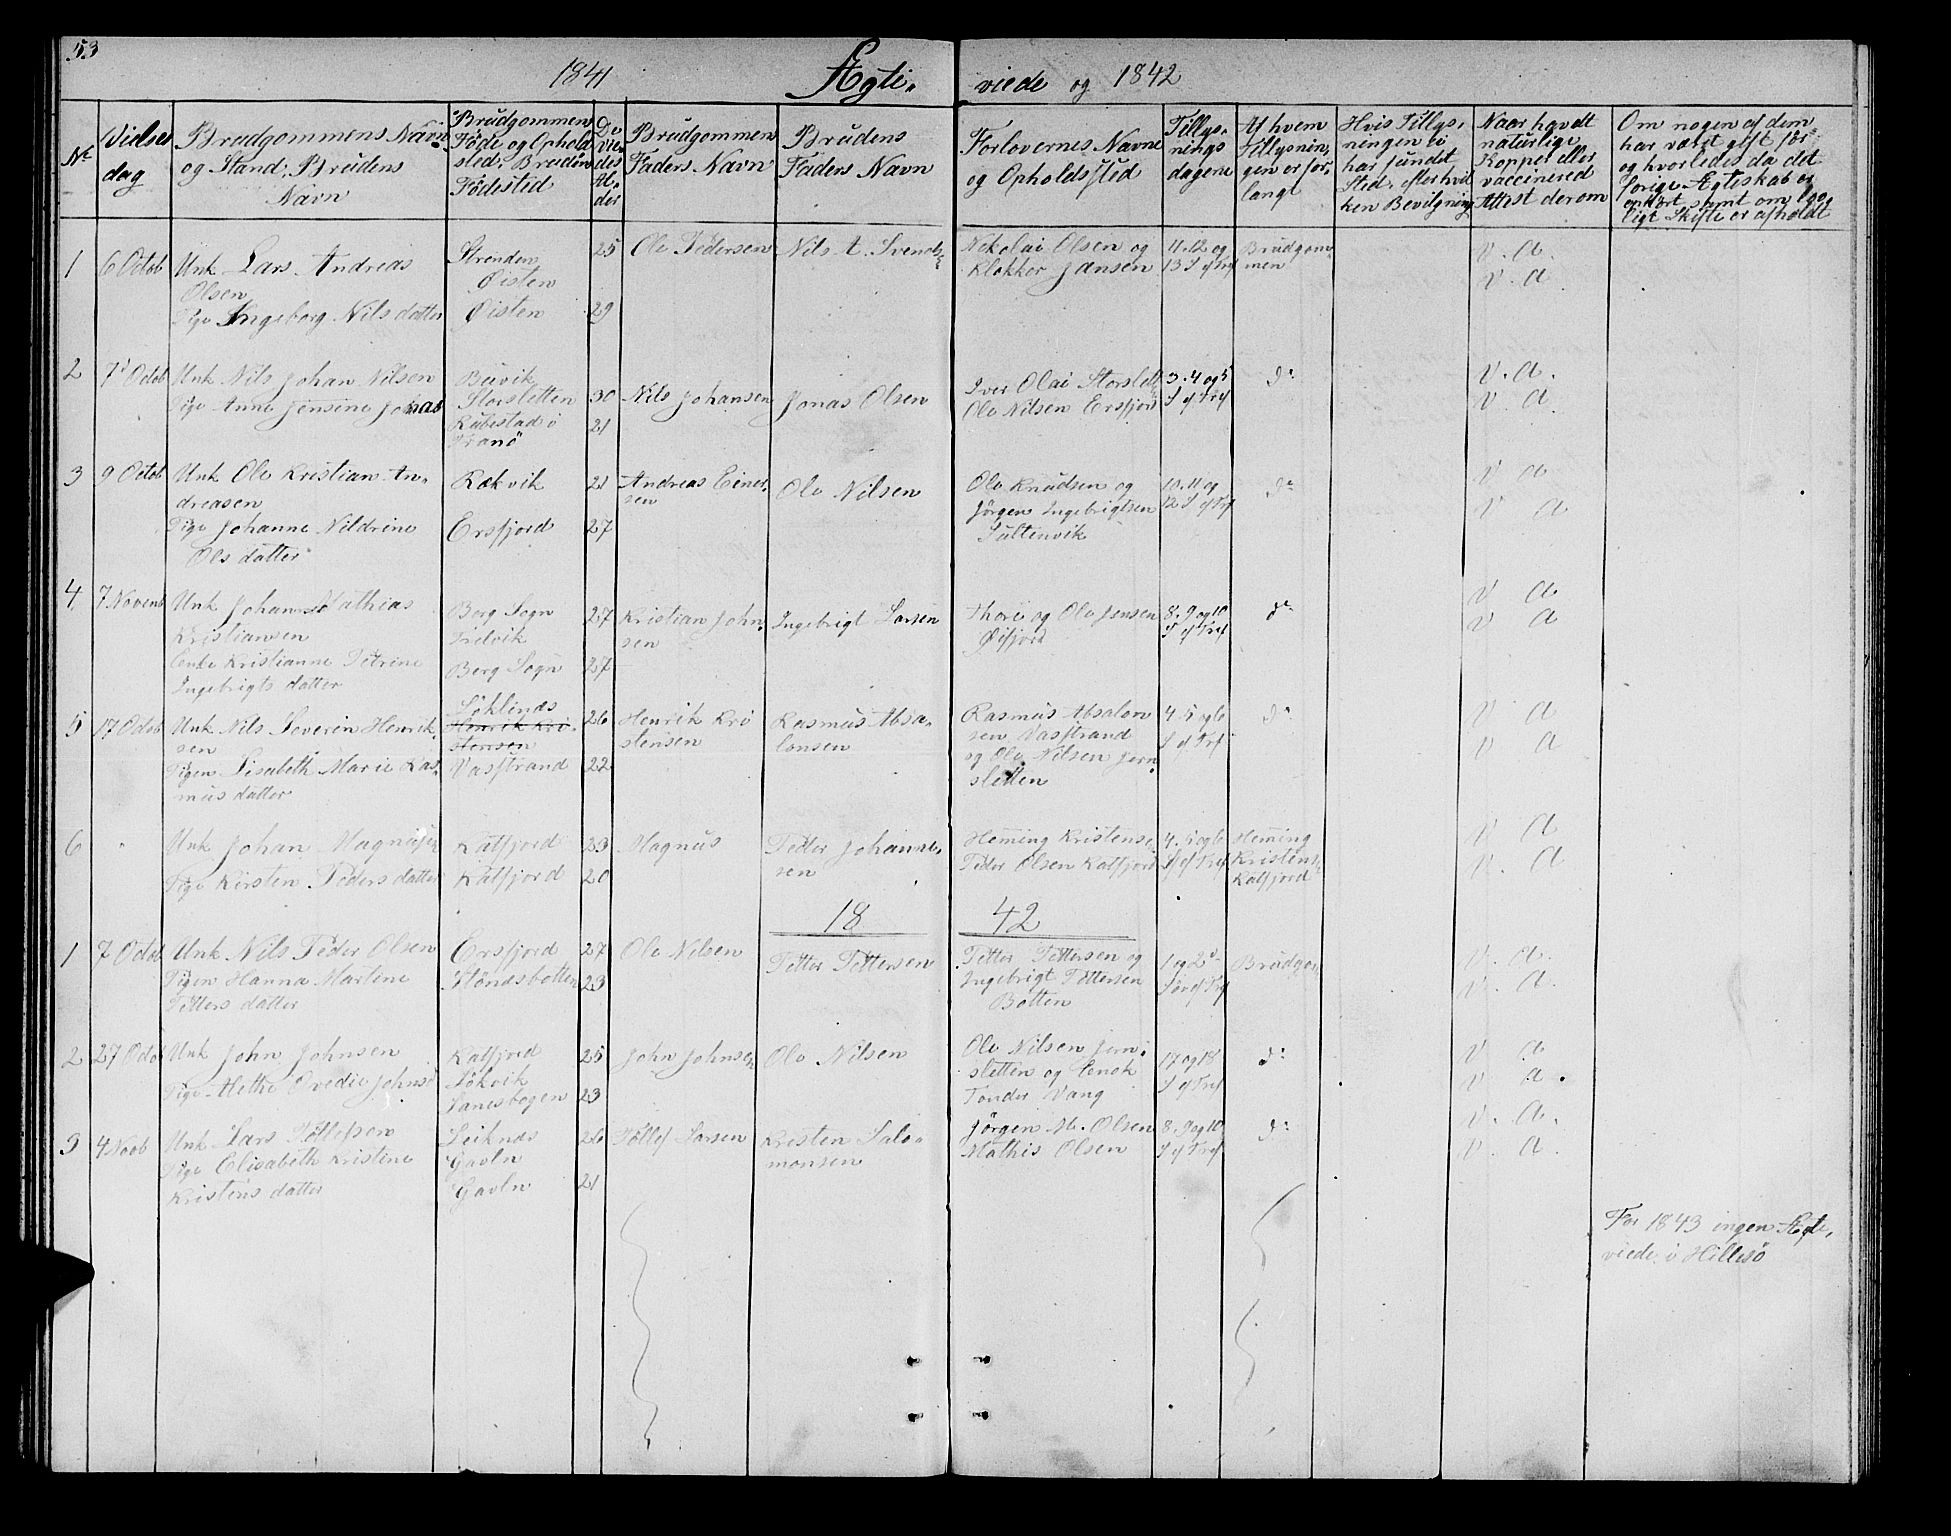 53
1841 Ægte- viede og 1842
No
Vielses
dag
Brudgommens Navn
og Stand; Brudens
Navn
Brudgommens
Føde og Ophold
sted; Brudens
Födested
De
vie
des
Al-
der
Brudgommen
Faders Navn
Brudens
Faders Navn
Forlovernes Navne
og Opholdssted
Tillys-
nings
dagene
Af hvem
Tillysnin,
gen er for,
langt
Hvis Tillys,
ningen ei
har fundet
Sted, efter hvil
ken Bevilgning
Naar havdt
naturlige
Kopper eller
vaccinered
Attest derom
Om nogen af dem
har været gift før
og hvorledes da det
forige Ægteskab er
ophört samt om lov,
ligt Skifte er afholdt
1 6 Octob Unk Lars Andreas
Olsen
Pige Ingeborg Nils datter
Strenden
Øisten
Øisten
25
29
Ole Pedersen
Nils A. Svends
Nikolai Olsen og
Klokker Jansen
11. 12 og
13 S ef Tref
Brudgom-
men
V. a.
V. a
2 7d Octob Unk Nils Johan Nilsen
Pige Anne Jensine Jonas
Buvik
Storsletten
Rubestad i
Tranö
30
21
Nils Johansen
Jonas Olsen
Iver Olai Storslett
Ole Nilsen Ersfjord
3. 4 og 5
S ef Tref
do
V. a.
V. a
3 9 Octob Unk Ole Kristian An-
dreasen
Pige Johanne Nildrine
Ols datter
Rekvik
Ersfjord
21
27
Andreas Einer-
sen
Ole Nilsen
Ole Knudsen og
Jörgen Ingebrigtsen
Sultenvik
10. 11 og
12 S ef Tref
do
V a
V a
4 7 Novemb Unk Johan Mathias
Kristiansen
Enke Kristianne Petrine
Ingebrigts datter
Berg Sogn
Trelvik
Berg Sogn
27
27
Kristian John-
sen
Ingebrigt Larsen
Thore og Ole Jensen
Øifjord
8. 9 og 10
S ef Tref
do
V a
V a
5 17 Octob Unk Nils Severin Henrik-
sen
Pigen Lisabeth Marie Ras-
mus datter
Löklines
Henrik Kri-
stensen
Vasstrand
26
22
Henrik Kri
stensen
Rasmus Absa-
lonsen
Rasmus Absalon
sen Vasstrand
og Ole Nilsen Jern
sletten
4. 5 og 6
S ef Tref
do
V a
V a
6 " Unk Johan Magnusen
Pige Kirsten Peders datter
Katfjord
Katfjord
23
20
Magnus
Peder Johanne-
sen
Heming Kristense
Peder Olsen Katfjord
4. 5 og 6
S ef Tref
Heming
Kristens
Katfjord
V a
V. a
18 42
1 7 Octob Unk Nils Peder Olsen
Pigen Hanna Martine
Petters datter
Ersfjord
Stöndsbotten
27
23
Ole Nilsen
Petter Pettersen
Petter Pettersen og
Ingebrigt Pettersen
Botten
1 og 2d
S ef Tref
Brudgo
V. a.
V. a.
2 27 Octob Unk John Johnsen
Pige Alethe Ovedie Johns
Katfjord
Lökvik
Sanesbogen
25
23
John Johnsen
Ole Nilsen
Ole Nilsen Jern-
sletten og Enok
Tonder Vang
17 og 18
S ef Tref
do
V a
V a.
3 4 Novb Unk Lars Tollefsen
Pige Elisabeth Kristine
Kristens datter
Leiknes
Gavln
Gavln
26
21
Tollef Larsen
Kristen Salo-
monsen
Jörgen M. Olsen
Mathis Olsen
8. 9 og 10
S ef Tref
do
V. a.
V. a.
For 1843 ingen Ægte,
viede i Hillesö